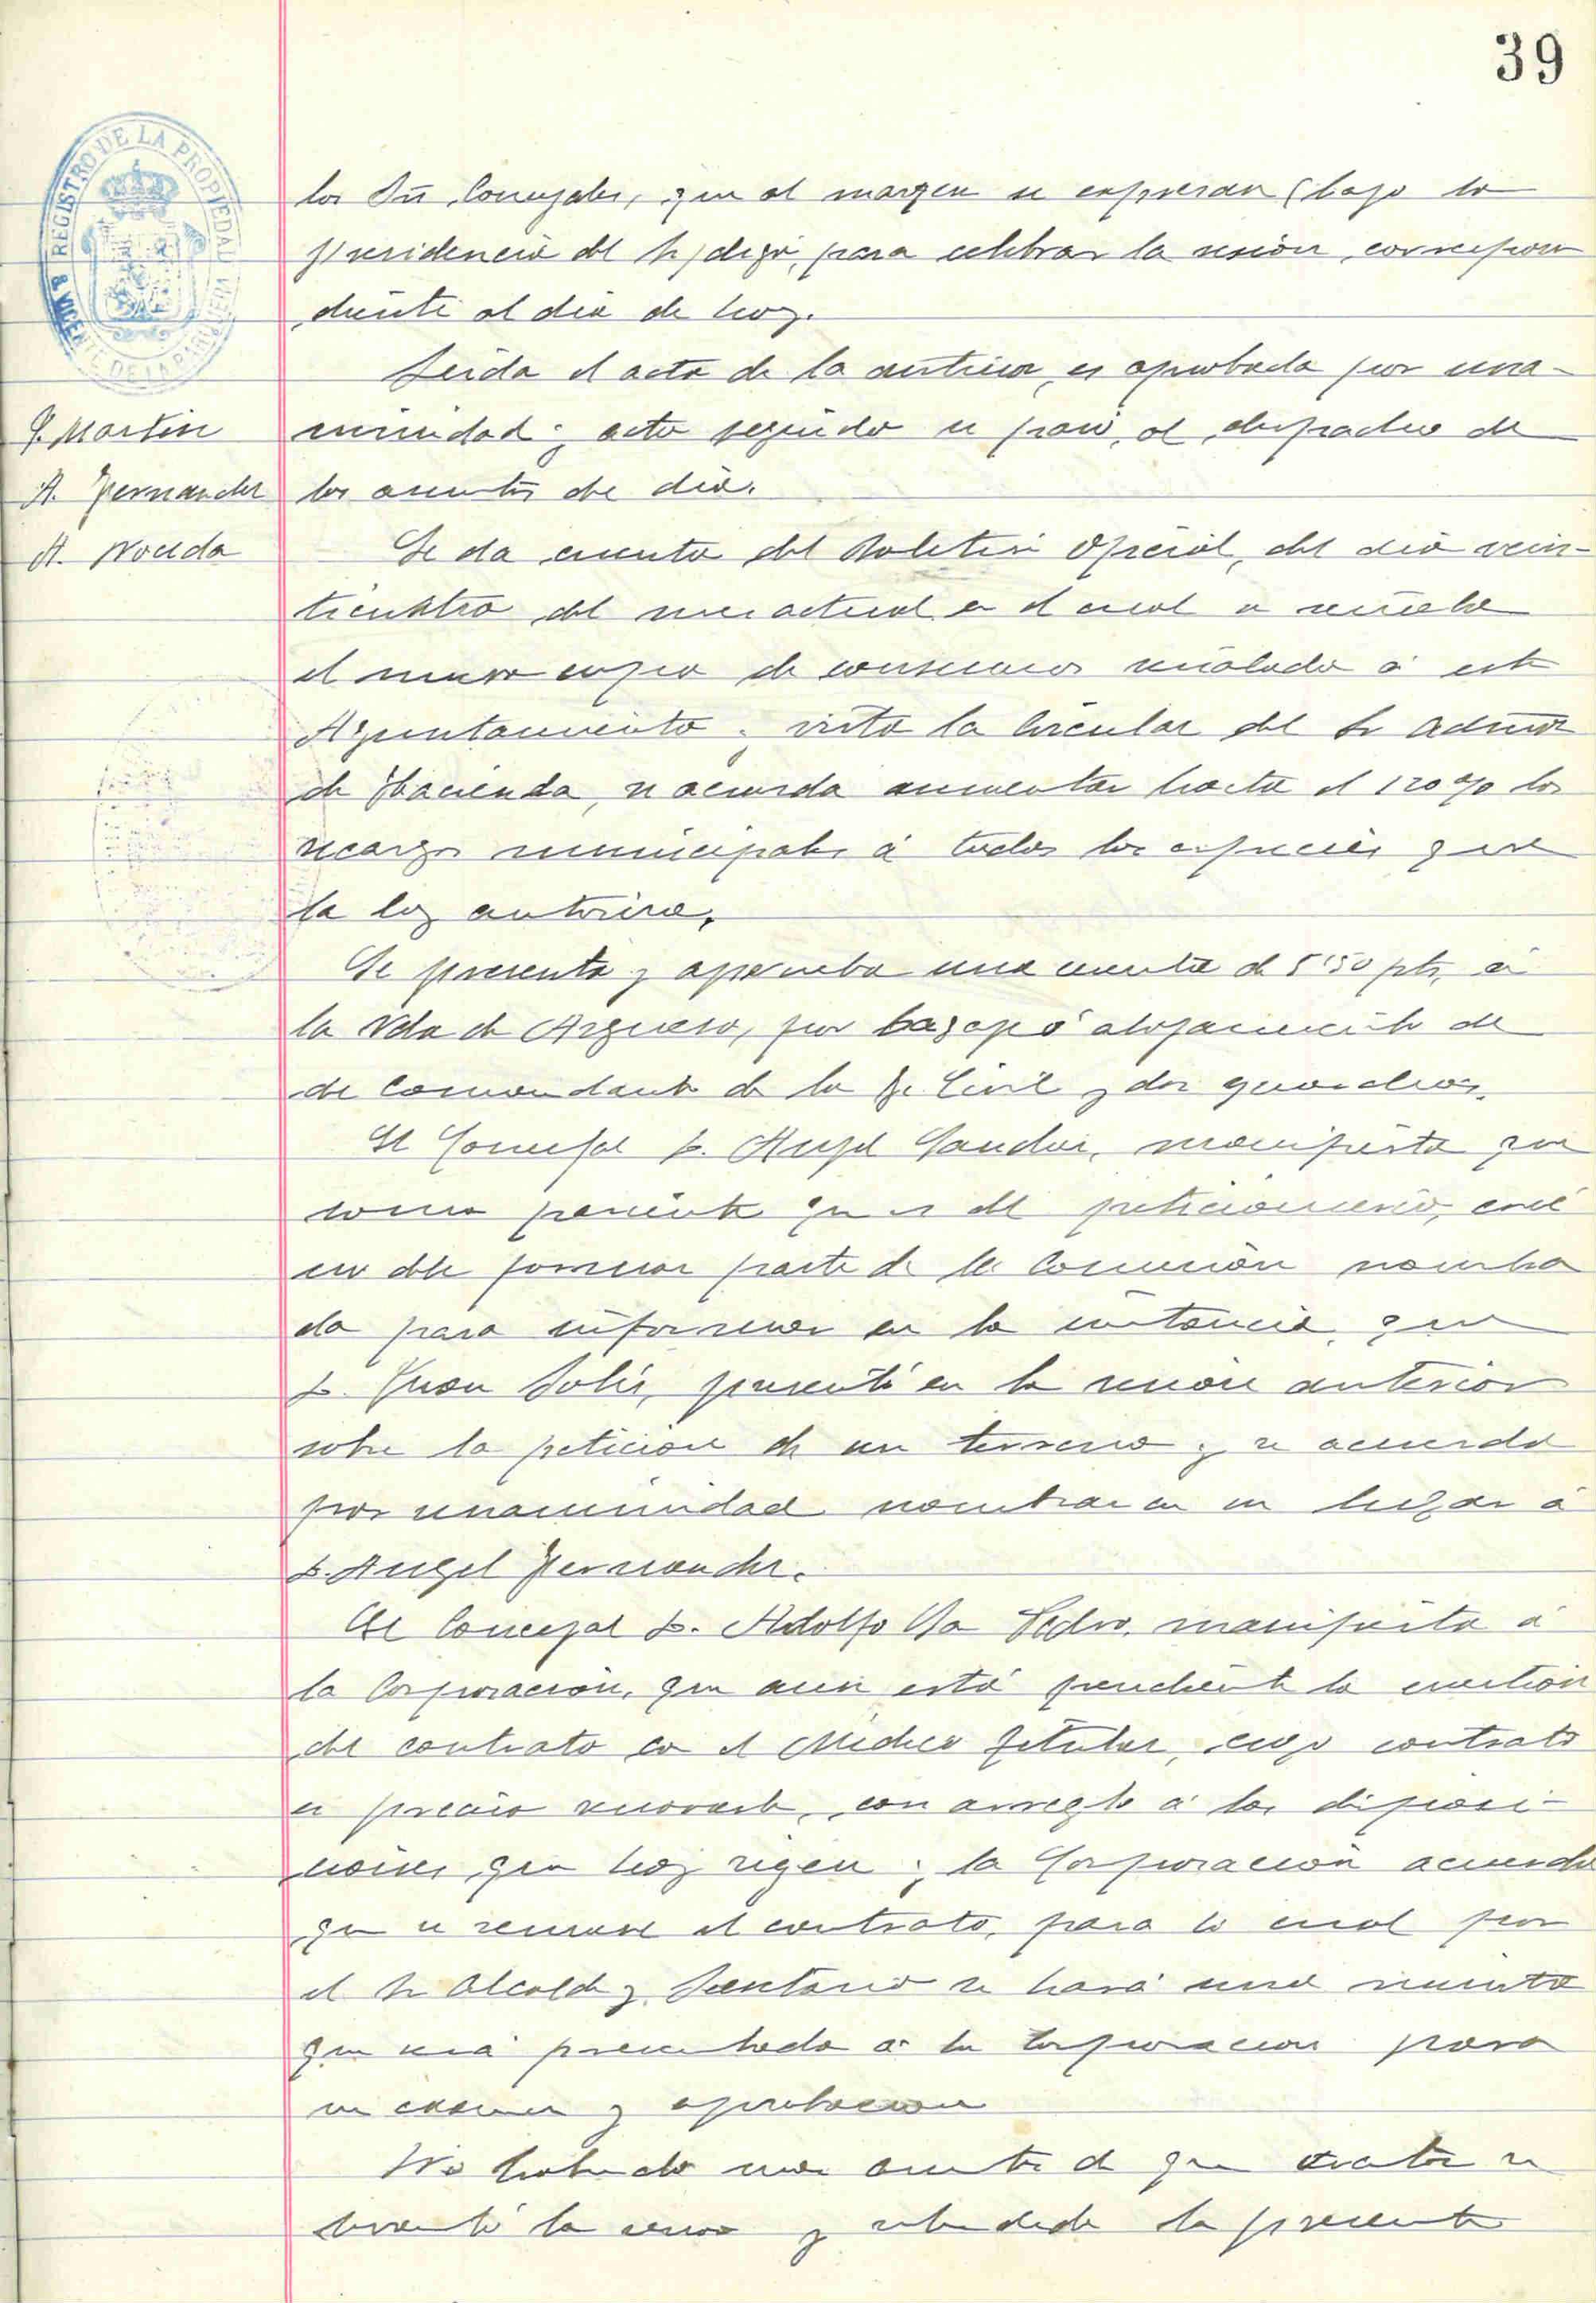 39
REGISTRO DE LA PROPIEDAD
S. VICENTE DE LA BARQUERA
J. Martin
A. Fernandez
A. Noveda
los Srs Concejales, que al margen se expresan (bajo la
presidencia del Sr, para celebrar la sesión, correspon
diente al dia de hoy.
Leida el acta de la anterior, es aprobada por una-
nimidad; acto seguido se pasó, al despacho de
los asuntos de dia.
Se da cuenta del Boletin Oficial, del dia vein-
ticuatro del mes actual en el cual se
el nuevo cupo de consumos señalado á este
Ayuntamiento; vista la Circular del Sr Admor
de Hacienda, se acuerda aumentar hasta el 120 % los
recargos municipales á todas las especies que
la ley autoriza.
Se presenta y aprueba una cuenta de 5'50 pts, á
la Vda de Argüeso, por bagaje ó alojamiento de
de Comandante de la G. Civil y dos guardias.
El Concejal D. Angel Sanchez, manifiesta que
como pariente que es del peticionario, cree
no debe formar parte de la Comisión nombra
da para informar en la instancia, que
D. Juan Solis, presentó en la sesión anterior
sobre la petición de un terreno y se acuerda
por unanimidad nombrar en su lugar á
D. Angel Fernandez.
El Concejal D. Adolfo Pedro, manifiesta á
la Corporación, que aun está pendiente la cuestión
del contrato con el Médico Titular, cuyo contrato
es preciso renovarle, con arreglo á las disposi-
ciones que hoy rigen; la Corporación acuerda
que se renueve el contrato, para lo cual por
el Sr Alcalde y Secretario se hará una minuta
que será presentada á la Corporacion para
su examen y aprobacion
No habiendo mas asuntos de que tratar se
levantó la sesion y estendida la presente